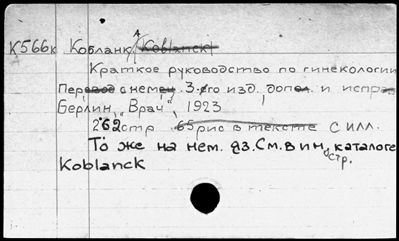 К566к Кобланк, А Koblanck
Краткое руководство по гинекологии
Перевод с немец. 3-его изд. допол. и испрa
Берлин, "Врач", 1923
262 стр 65 рис в тексте с илл.
То же на нем. яз. См. в ин стр. каталоге
Koblanck